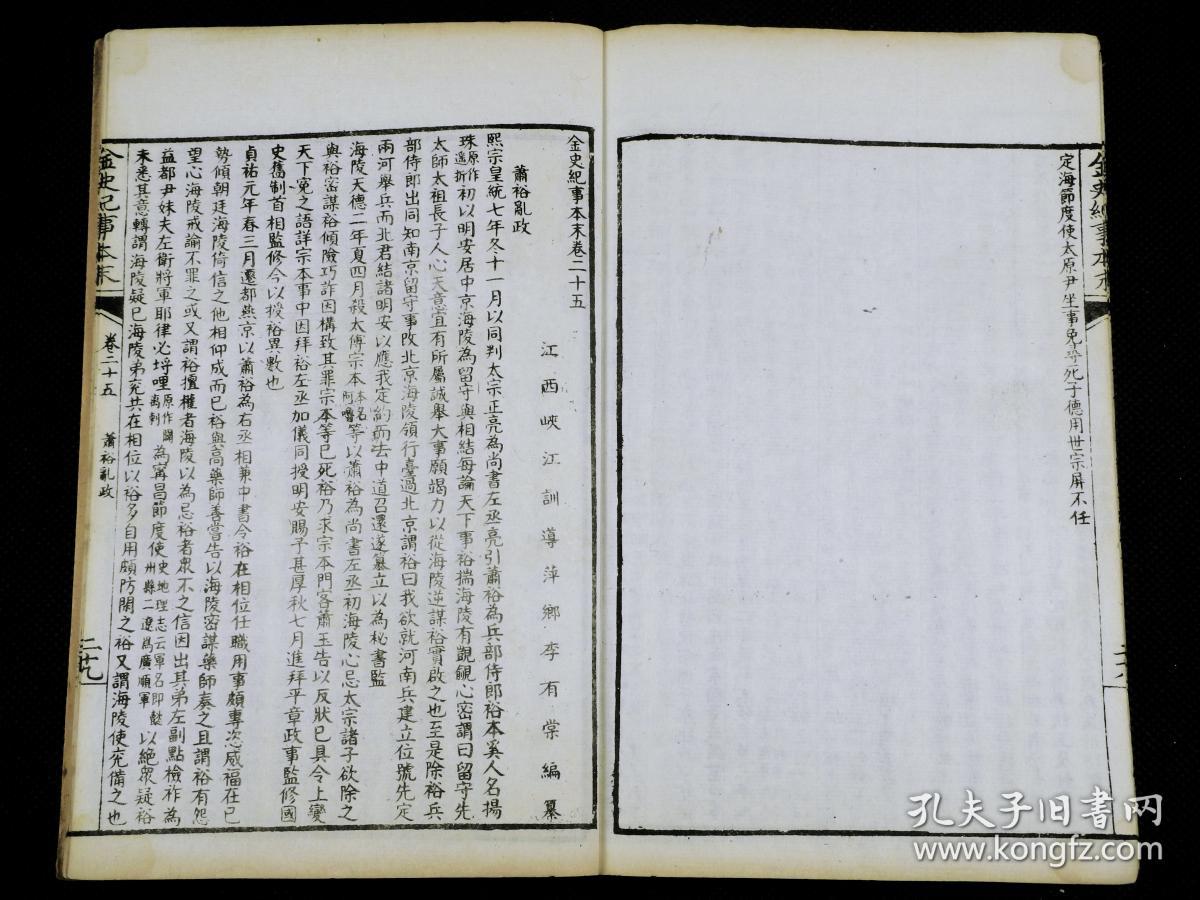 定海節度使太原尹坐事免尋死子德用世宗屏不任
金史紀事本末卷二十五
江西峽江訓導萍鄉李有棠編纂
蕭裕亂政
熙宗皇統七年冬十一月以同判太宗正亮為尚書左丞亮引蕭裕為兵部侍郎裕本奚人名揚
珠原作遙折初以明安居中京海陵為留守與相結每論天下事裕揣海陵有覬覦心密謂曰留守先
太師太祖長子人心天意宜有所屬誠舉大事願竭力以從海陵逆謀裕實啟之也至是除裕兵
部侍郎出同知南京留守事改北京海陵領行臺過北京謂裕曰我欲就河南兵建立位號先定
兩河舉兵而北君結諸明安以應我定約而去中道召還遂篡立以為秘書監
海陵天德二年夏四月殺太傅宗本本名阿嚕等以蕭裕為尚書左丞初海陵心忌太宗諸子欲除之
與裕密謀裕傾險巧詐因構致其罪宗本等已死裕乃求宗本門客蕭玉告以反狀已具令上變
天下冤之語詳宗本事中因拜裕左丞加儀同授明安賜予甚厚秋七月進拜平章政事監修國
史舊制首相監修今以授裕異數也
貞祐元年春三月遷都燕京以蕭裕為右丞相兼中書令裕在相位任職用事頗專恣威福在已
勢傾朝廷海陵倚信之他相仰成而已裕與高藥師善嘗告以海陵密謀藥師奏之且謂裕有怨
望心海陵戒諭不罪之或又謂裕擅權者海陵以為忌裕者衆不之信因出其弟左副點檢祚為
益都尹妹夫左衛將軍耶律必埒哩原作闢离剌為寗昌節度使史地理志云軍名即懿州縣二遼為廣順軍以絕衆疑裕
未悉其意轉謂海陵疑已海陵弟充共在相位以裕多自用頗防閑之裕又謂海陵使充備之也
金史紀事本末
卷二十五
蕭裕亂政
二十九
金史紀事本末
孔夫子旧书网
www.kongfz.com